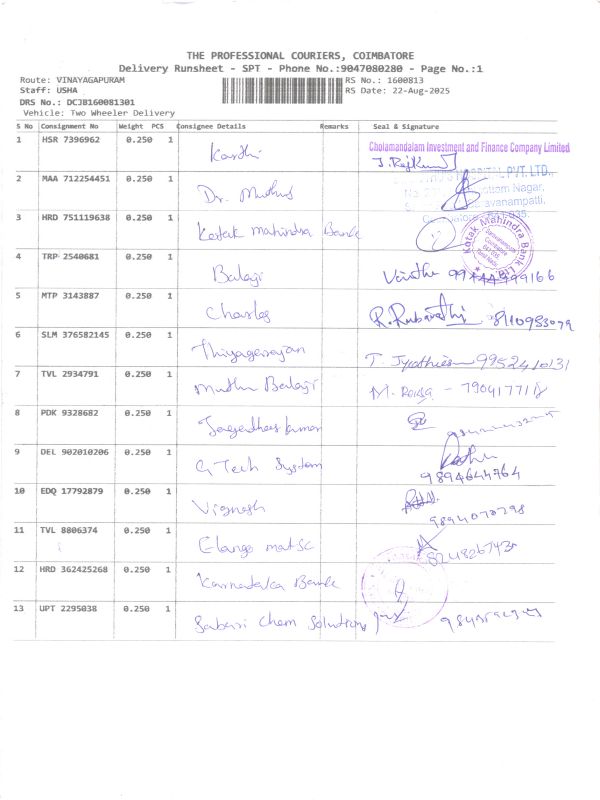 THE PROFESSIONAL COURIERS, COIMBATORE
Delivery Runsheet - SPT - Phone No.:9047080280 - Page No.:1
Route: VINAYAGAPURAM RS No.: 1600813
Staff: USHA RS Date: 22-Aug-2025
DRS No.: DCJB160081301
Vehicle: Two Wheeler Delivery
S No Consignment No Weight PCS Consignee Details Remarks Seal & Signature
1 HSR 7396962 0.250 1 Karthi Cholamandalam Investment and Finance Company Limited
J. RajKumar
2 MAA 712254451 0.250 1 Dr. Muthus PVT. LTD.,
Nagar,
3 HRD 751119638 0.250 1 Kotak mahindra Bank Kotak Mahindra Bank
4 TRP 2540681 0.250 1 Balaji
5 MTP 3143887 0.250 1 Charles 8110953079
6 SLM 376582145 0.250 1 Thiyagarajan 9952410131
7 TVL 2934791 0.250 1 Muthu Balaji
8 PDK 9328682 0.250 1
9 DEL 902010206 0.250 1 G Tech System
9894644764
10 EDQ 17792879 0.250 1 Vignesh
11 TVL 8806374 0.250 1 Elango
12 HRD 362425268 0.250 1 Karnataka Bank
13 UPT 2295038 0.250 1 Sabari Chem Solutions